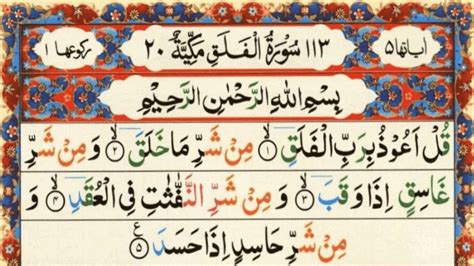 اٰیاتها ۵ ۱۱۳ سُوْرَةُ الْفَلَقِ مَكِّيَّةٌ ۲۰ رکوعها ۱
بِسْمِ اللهِ الرَّحْمٰنِ الرَّحِيْمِ
قُلْ اَعُوْذُ بِرَبِّ الْفَلَقِ ۙ‏۱ مِنْ شَرِّ مَا خَلَقَ ۙ‏۲ وَ مِنْ شَرِّ
غَاسِقٍ اِذَا وَقَبَ ۙ‏۳ وَ مِنْ شَرِّ النَّفّٰثٰتِ فِی الْعُقَدِ ۙ‏۴ وَ
مِنْ شَرِّ حَاسِدٍ اِذَا حَسَدَ ۵ ع